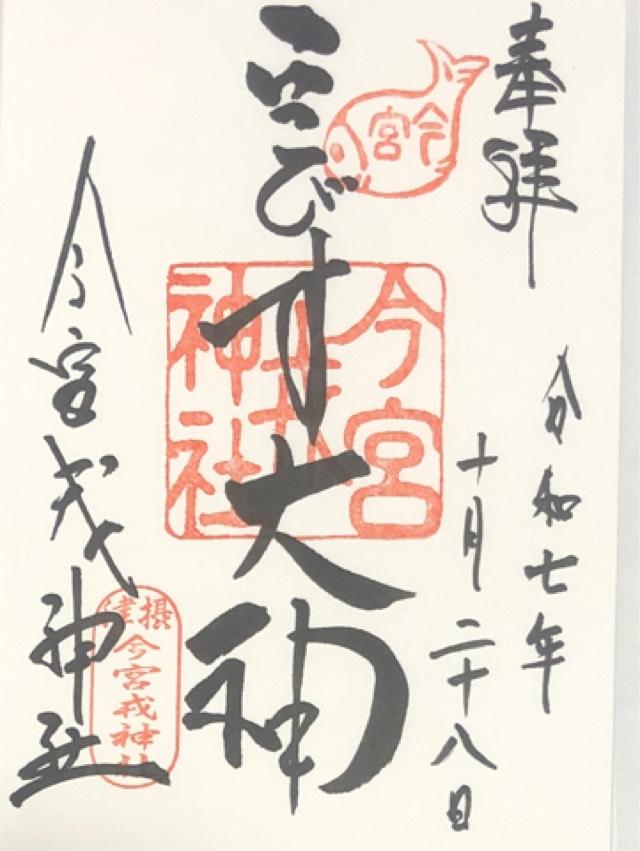 奉拝
令和七年
十月二十八日
ゑびす大神
今宮
今宮
戎
神社
今宮戎神社
摂津
今宮戎神社